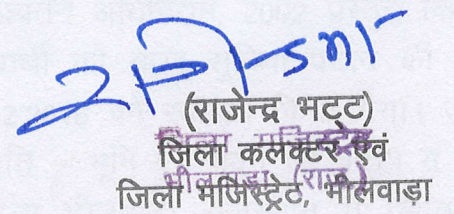 (राजेन्द्र भट्ट)
जिला कलेक्टर एवं
जिला मजिस्ट्रेट, भीलवाड़ा
जिला मजिस्ट्रेट
भीलवाड़ा (राज.)